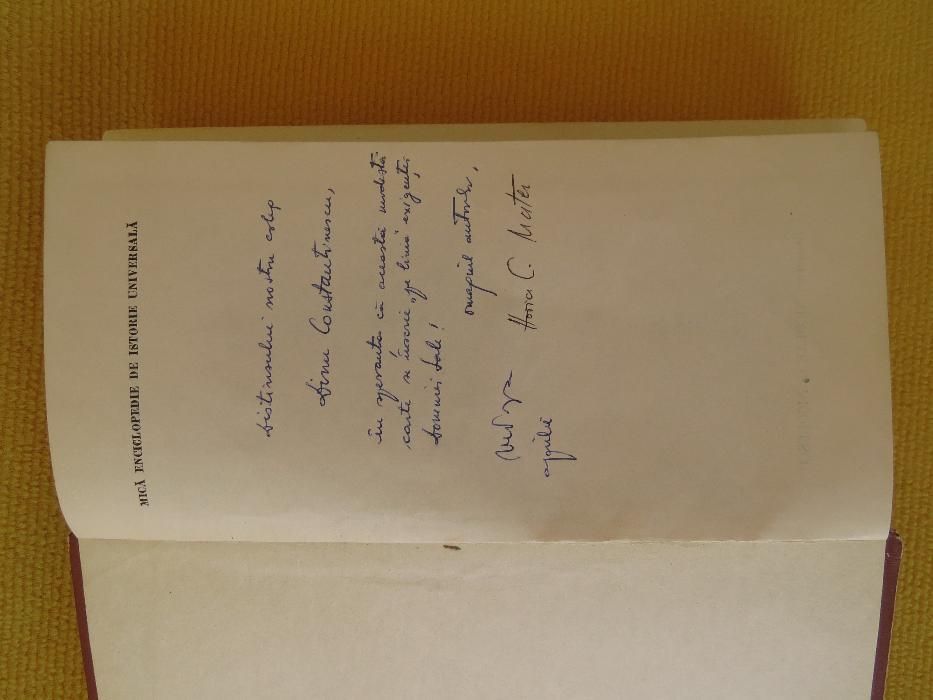 MICĂ ENCICLOPEDIE DE ISTORIE UNIVERSALĂ
Distinsului nostru coleg
Dinu Constantinescu,
în speranța că această modestă
carte se înscrie „pe linia" exigenței
Domniei Sale!
omagiul autorului,
Horia C. Matei
aprilie